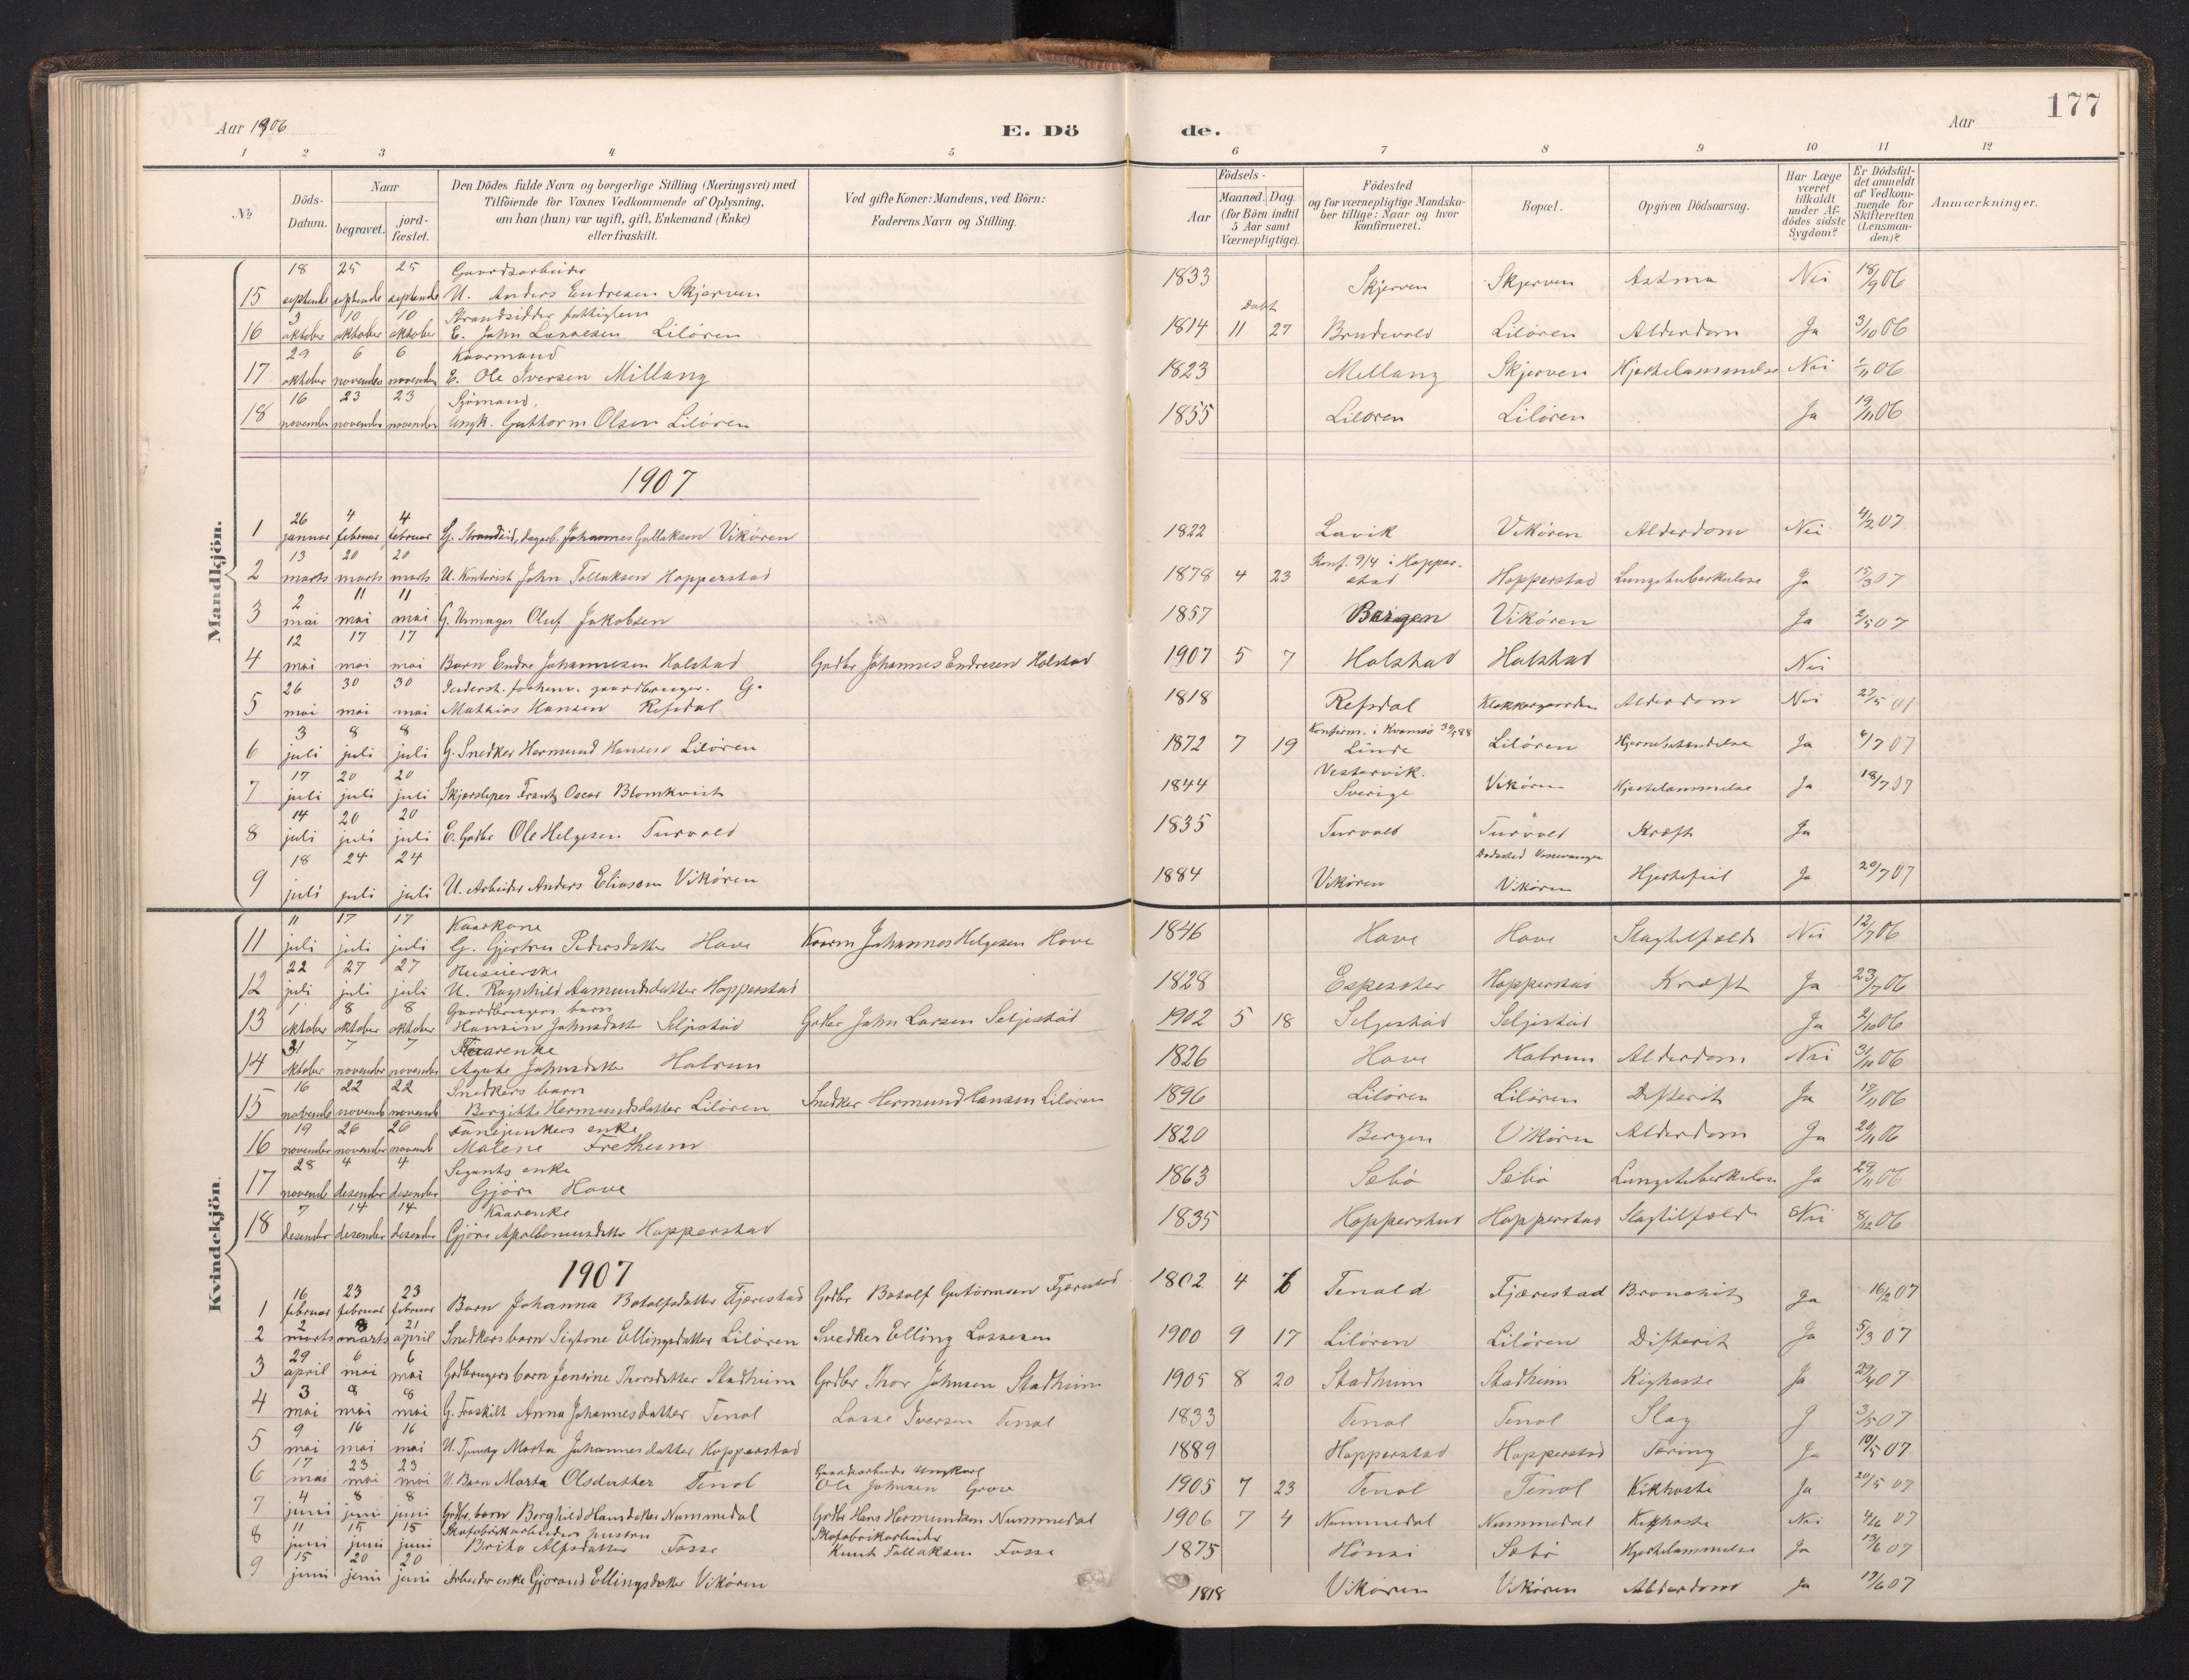 177
Aar 1906
E. Dö de.
Aar
1 2 3 4 5 6 7 8 9 10 11 12
№
Döds-Datum.
Naar
begravet.
jord-fæstet.
Den Dödes fulde Navn og borgerlige Stilling (Næringsvei) med
Tilföiende for Voxnes Vedkommende af Oplysning,
om han (hun) var ugift, gift, Enkemand (Enke)
eller fraskilt.
Ved gifte Koner: Mandens, ved Börn:
Faderens Navn og Stilling.
Födsels-
Aar
Maaned. Dag.
(for Börn indtil
5 Aar samt
Værnepligtige).
Födested
og for værnepligtige Mandska-
ber tillige: Naar og hvor
konfirmeret.
Bopæl.
Opgiven Dödsaarsag.
Har Læge
været
tilkaldt
under Af-
dödes sidste
Sygdom?
Er Dödsfal-
det anmeldt
af Vedkom-
mende for
Skifteretten
(Lensman-
den)?
Anmærkninger.
Mandkjön.
18 25 25 Gaardsarbeider
15 septembe septembe septembe U. Anders Endresen Skjerven 1833 Skjerven Skjerven Astma Nei 18/9 06
3 10 10 Strandsidder fattiglem Døbt
16 oktober oktober oktober E. John Lassesen Liløren 1814 11 27 Brudevold Liløren Alderdom Ja 3/10 06
29 6 6 Kaarmand
17 oktober november november E. Ole Iversen Millang 1823 Mellang Skjerven Hjertelammelse Nei 1/11 06
16 23 23 Sjømand,
18 november november november Ungk. Guttorm Olsen Liløren 1855 Liløren Liløren Ja 19/11 06
1907
26 4 4
1 januar februar februar G. Strandsid, dagarb. Johannes Gullakson Vikøren 1822 Lavik Vikøren Alderdom Nei 4/2 07
13 20 20
2 marts marts marts U. Kontorist John Tollaksen Hopperstad 1878 4 23 Konf. 9/4 i Hopper-stad Hopperstad Lungetuberkulose Ja 15/3 07
2 11 11
3 mai mai mai G. Urmager Oluf Jakobsen 1857 Bergen Vikøren Ja 2/5 07
12 17 17
4 mai mai mai Barn Endre Johannesen Holstad Grdbr Johannes Endresen Holstad 1907 5 7 Holstad Holstad Nei
26 30 30 Inderst. forhenv. gaardbruger. G.
5 mai mai mai Mathias Hansen Refsdal 1818 Refsdal Klokkergaarden Alderdom Nei 27/5 07
3 8 8
6 juli juli juli G. Snedker Hermund Hansen Liløren 1872 7 19 Konfirm. i Kvamsø 30/9 88 Linde Liløren Hjernebetændelse Ja 4/7 07
17 20 20
7 juli juli juli Skjærsliper Frantz Oscar Blomkvist 1844 Vestervik. Sverige Vikøren Hjertelammelse Ja 18/7 07
14 20 20
8 juli juli juli E. Grdbr Ole Helgesen Turvold 1835 Turvold Turvold Kræft Ja
18 24 24
9 juli juli juli U. Arbeider Anders Eliasen Vikøren 1884 Vikøren Dødssted Vossevangen Vikøren Hjertefeil Ja 20/7 07
Kvindekjön.
11 17 17 Kaarkone
11 juli juli juli G. Gjertrud Pedersdatter Hove Kaarm Johannes Helgesen Hove 1846 Hove Hove Slagtilfælde Nei 12/7 06
22 27 27 Husnerske
12 juli juli juli U. Ragnhild Aamundsdatter Hopperstad 1828 Espeseter Hopperstad Kræft Ja 23/7 06
1 8 8 Gaardbrugers barn
13 oktober oktober oktober Hansine Johnsdatter Seljestad Grdbr John Larsen Seljestad 1902 5 18 Seljestad Seljestad Ja 2/10 06
31 7 7 Kaarenke
14 oktober november november Agate Johnsdatter Holrum 1826 Hove Holrum Alderdom Nei 3/11 06
16 22 22 Snedkers barn
15 novemb novemb novemb Bergitte Hermundsdatter Liløren Snedker Hermund Hansen Liløren 1896 Liløren Liløren Difterit Ja 17/11 06
19 26 26 Fanejunkers enke
16 november november novemb Malene Fretheim 1820 Bergen Vikøren Alderdom Ja 20/11 06
28 4 4 Sergants enke
17 novemb desember desember Gjøri Hove 1863 Sæbø Sæbø Lungetuberkulose Ja 29/11 06
7 14 14 Kaarenke
18 desember desember desember Gjøri Apalbonusdatter Hopperstad 1835 Hopperstad Hopperstad Slagtilfælde Nei 8/12 06
1907
16 23 23
1 februar februar februar Barn Johanna Botolfsdatter Fjærestad Grdbr Botolf Gutormsen Fjærestad 1802 4 7 Tenold Fjærestad Bronchit Ja 16/2 07
2 8 21
2 marts marts april Snedkers barn Sigtone Ellingsdatter Liløren Snedker Elling Lassesen 1900 9 17 Liløren Liløren Difterit Ja 5/3 07
29 6 6
3 april mai mai Grdbrugers barn Jensine Thorsdatter Stadheim Grdbr Thor Johnsen Stadheim 1905 8 20 Stadheim Stadheim Kighoste Ja 29/4 07
3 8 8
4 mai mai mai G. Fraskilt Anna Johannesdatter Tenol Lasse Iversen Tenol 1833 Tenol Tenol Slag J 3/5 07
9 16 16
5 mai mai mai U. Marta Johannesdatter Hopperstad 1889 Hopperstad Hopperstad Tæring Ja 10/5 07
17 23 23 Gaardsarbeider Ungkarl
6 mai mai mai U. Barn Marta Olsdatter Tenol Ole Johnsen Grove 1905 7 23 Tenol Tenol Kikhoste Ja 20/5 07
4 8 8
7 juni juni juni Grdbr. barn Borghild Hansdatter Nummedal Grdbr Hans Hermundsen Nummedal 1906 7 4 Nummedal Nummedal Kighoste Nei 4/6 07
11 15 15 Skofabrikarbeiders hustru Skofabrikarbeider
8 juni juni juni Brita Alfsdatter Fosse Knut Tollaksen Fosse 1875 Hønsi Sæbø Hjertelammelse Ja 13/6 07
15 20 20
9 juni juni juni Arbeider enke Gjørand Ellingsdatter Vikøren 1818 Vikøren Vikøren Alderdom Ja 17/6 07